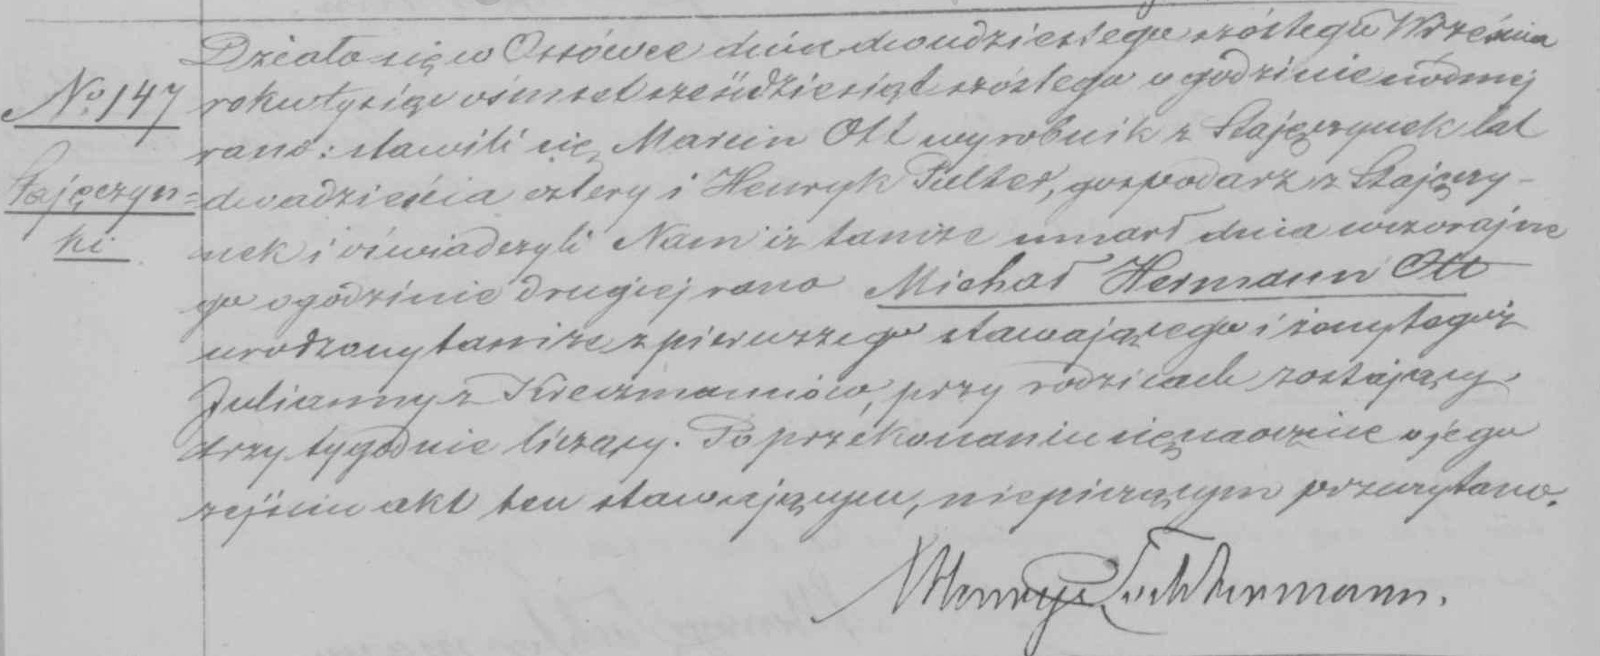 Działo się w Ossówce dnia dwudziestego szóstego Września
No 147
roku tysiąc ośmset sześćdziesiąt szóstego o godzinie siódmej
rano: stawili się Marcin Ott wyrobnik z Stajęczynek lat
Stajęczyn=
dwadzieścia cztery i Henryk Pulter, gospodarz z Stajęczy-
ki
nek i oświadczyli Nam iż tamże umarł dnia wczorajsze
go o godzinie drugiej rano Michał Hermann Ott
urodzony tamże z pierwszego stawającego i żony tegoż
Julianny z Kreczmannów, przy rodzicach zostający,
trzy tygodnie liczący. Po przekonaniu się naocznie o jego
zejściu akt ten stawającym, niepiszącym przeczytano.